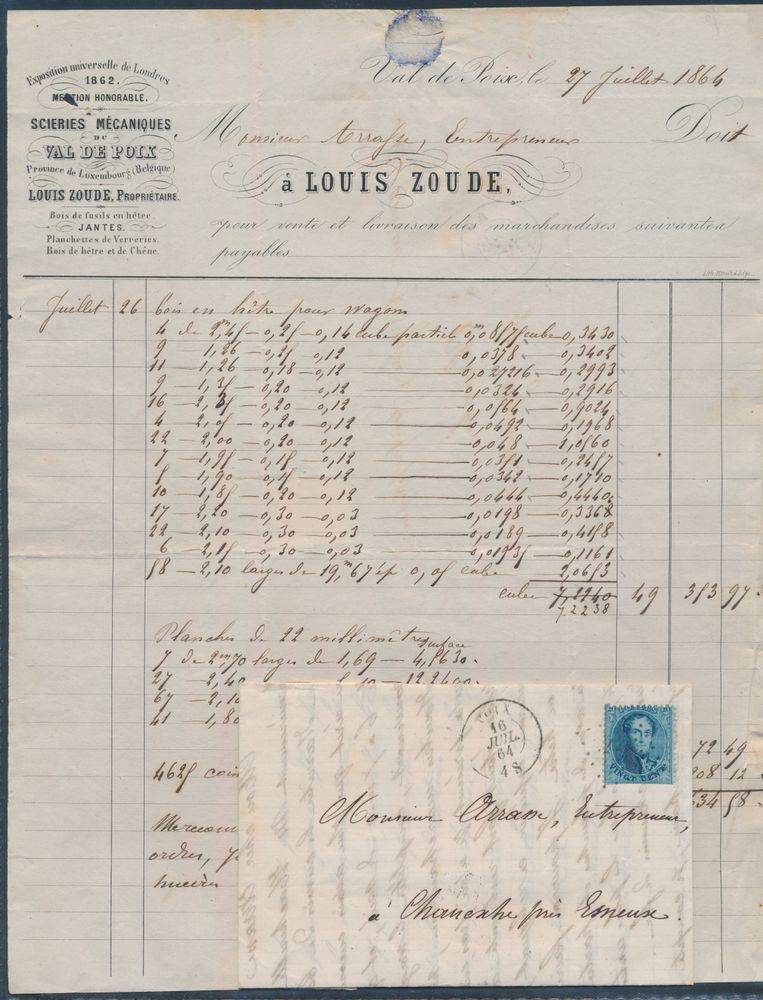 Exposition universelle de Londres
1862.
MENTION HONORABLE.
SCIERIES MÉCANIQUES
DU
VAL DE POIX
Province de Luxembourg (Belgique)
LOUIS ZOUDE, PROPRIÉTAIRE.
Bois de fusils en hêtre.
JANTES.
Planchettes de Verreries.
Bois de hêtre et de Chêne.
Val de Poix, le 27 Juillet 1864
Monsieur Arrasse, Entrepreneur Doit
à LOUIS ZOUDE,
pour vente et livraison des marchandises suivantes
payables
Juillet 26 bois en hêtre pour wagons
4 de 2,45 – 0,25 – 0,14 cube partiel 0,08575 cube 0,3430
9 – 1,26 – 0,25 0,12 0,0378 – 0,3402
11 – 1,26 – 0,18 – 0,12 0,027216 – 0,2993
9 – 1,35 – 0,20 – 0,12 0,0324 – 0,2916
16 – 2,35 – 0,20 – 0,12 0,0564 – 0,9024
4 – 2,05 – 0,20 – 0,12 0,0492 – 0,1968
22 – 2,00 – 0,20 – 0,12 0,048 – 1,0560
7 – 1,95 – 0,15 – 0,12 0,0351 – 0,2457
5 – 1,90 – 0,15 – 0,12 0,0342 – 0,1710
10 – 1,85 – 0,20 – 0,12 0,0444 – 0,4440
17 – 2,20 – 0,30 – 0,03 0,0198 – 0,3366
22 – 2,10 – 0,30 – 0,03 0,0189 – 0,4158
6 – 2,15 – 0,30 – 0,03 0,01935 – 0,1161
58 – 2,10 larges de 19,67 ép 0,05 cube 2,0653
cube 7,2240 49 353 97
7,2238
Planches de 22 millimètres surface
7 de 2,70 larges de 1,69 – 4,5630
27 – 2,40 12,2400
67 – 2,10
41 – 1,80
72 49
4625 coin 208 12
634 58
ordres,
POIX
16
JUIL.
64
4 S
VINGT CENT.
Monsieur Arrasse, Entrepreneur,
à Chanxhe près Esneux.